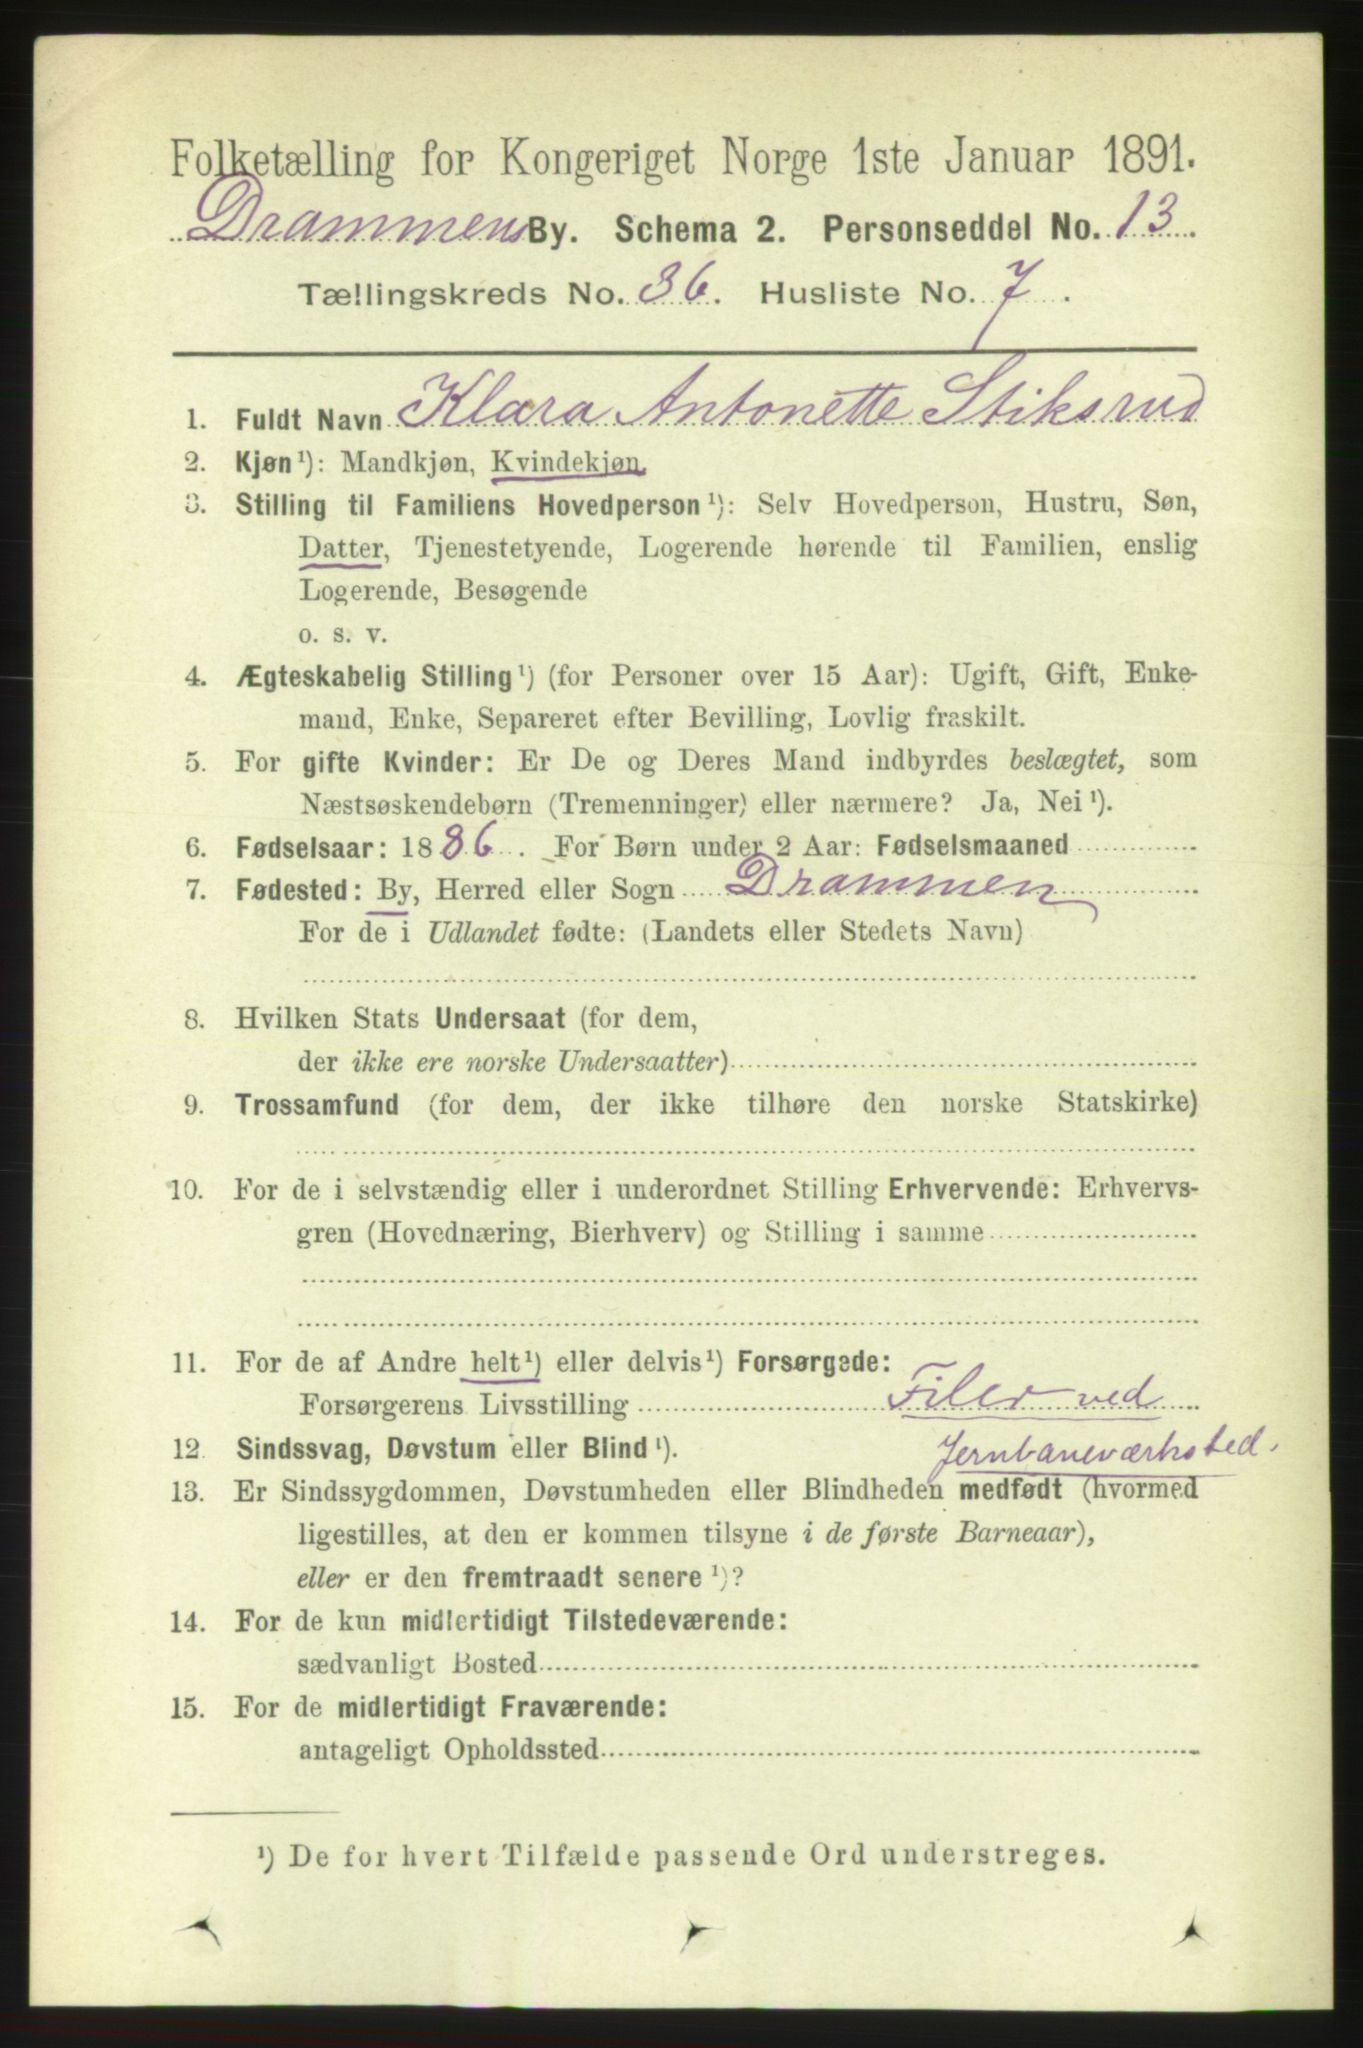 Folketælling for Kongeriget Norge 1ste Januar 1891.
Drammens By. Schema 2. Personseddel No. 13.
Tællingskreds No. 36. Husliste No. 7.
1. Fuldt Navn Klara Antonette Stiksrud
2. Kjøn¹): Mandkjøn, Kvindekjøn.
3. Stilling til Familiens Hovedperson¹): Selv Hovedperson, Hustru, Søn,
Datter, Tjenestetyende, Logerende hørende til Familien, enslig
Logerende, Besøgende
o. s. v.
4. Ægteskabelig Stilling¹) (for Personer over 15 Aar): Ugift, Gift, Enke-
mand, Enke, Separeret efter Bevilling, Lovlig fraskilt.
5. For gifte Kvinder: Er De og Deres Mand indbyrdes beslægtet, som
Næstsøskendebørn (Tremenninger) eller nærmere? Ja, Nei¹).
6. Fødselsaar: 1886. For Børn under 2 Aar: Fødselsmaaned
7. Fødested: By, Herred eller Sogn Drammen
For de i Udlandet fødte: (Landets eller Stedets Navn)
8. Hvilken Stats Undersaat (for dem,
der ikke ere norske Undersaatter)
9. Trossamfund (for dem, der ikke tilhøre den norske Statskirke)
10. For de i selvstændig eller i underordnet Stilling Erhvervende: Erhvervs-
gren (Hovednæring, Bierhverv) og Stilling i samme
11. For de af Andre helt¹) eller delvis¹) Forsørgede:
Forsørgerens Livsstilling Filer ved
Jernbaneværksted.
12. Sindssvag, Døvstum eller Blind¹).
13. Er Sindssygdommen, Døvstumheden eller Blindheden medfødt (hvormed
ligestilles, at den er kommen tilsyne i de første Barneaar),
eller er den fremtraadt senere¹)?
14. For de kun midlertidigt Tilstedeværende:
sædvanligt Bosted
15. For de midlertidigt Fraværende:
antageligt Opholdssted
¹) De for hvert Tilfælde passende Ord understreges.